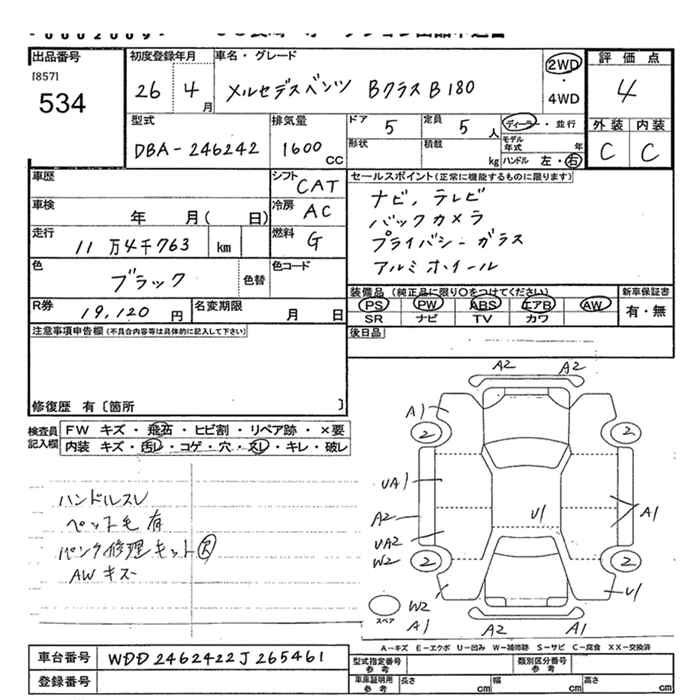 00002009
出品番号 初度登録年月 車名・グレード 2WD・4WD 評価点
[857] 534
26年 4月
メルセデスベンツ BクラスB180
4
外装 内装
C C
型式 排気量 ドア 定員 ディーラー・並行
DBA-246242 1600cc 5 5人
形状 積載 kg モデル年式 年
ハンドル 左・右
車歴 シフト CAT
セールスポイント(正常に機能するものに限ります)
ナビ、テレビ
バックカメラ
プライバシーガラス
アルミホイール
車検 年 月( 日) 冷房 AC
走行 11万4千763 km 燃料 G
色 ブラック 色替 色コード
R券 19,120円 名変期限 月 日
装備品(純正品に限り○をつけてください) 新車保証書
PS PW ABS エアB AW 有・無
SR ナビ TV カワ
注意事項申告欄(不具合内容等は具体的に記入して下さい)
後日品
修復歴 有〔箇所 〕
検査員記入欄
FW キズ・飛石・ヒビ割・リペア跡・×要
内装 キズ・汚レ・コゲ・穴・スレ・キレ・破レ
ハンドルスレ
ペット毛有
パンク修理キットR
AWキズ
A2 A2
A1
2 2
UA1
A2 U1 A1
UA2
W2
2 2
U1
スペア W2
A1
A2 A1
A-キズ E-エクボ U-凹み W-補修跡 S-サビ C-腐食 XX-交換済
車台番号 WDD2462422J265461
登録番号
型式指定番号 参考 類別区分番号 参考
車庫証明用 参考 長さ cm 幅 cm 高さ cm